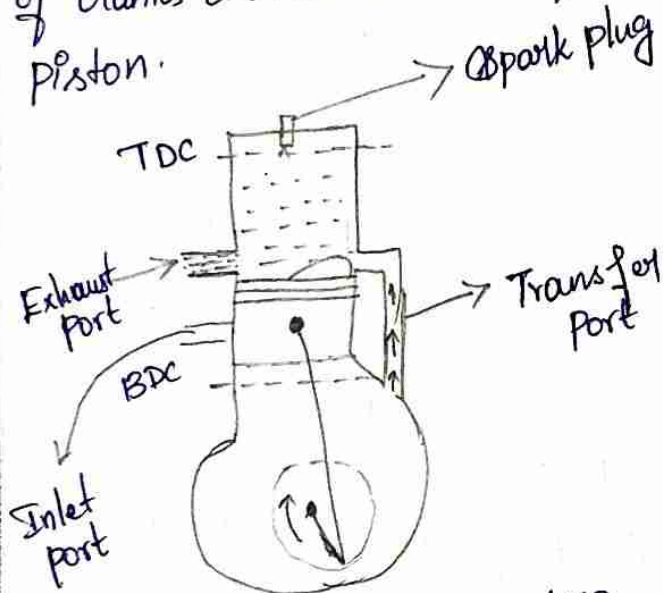 of
piston.
Spark plug
TDC
Exhaust
port
Transfer
port
BDC
Inlet
port